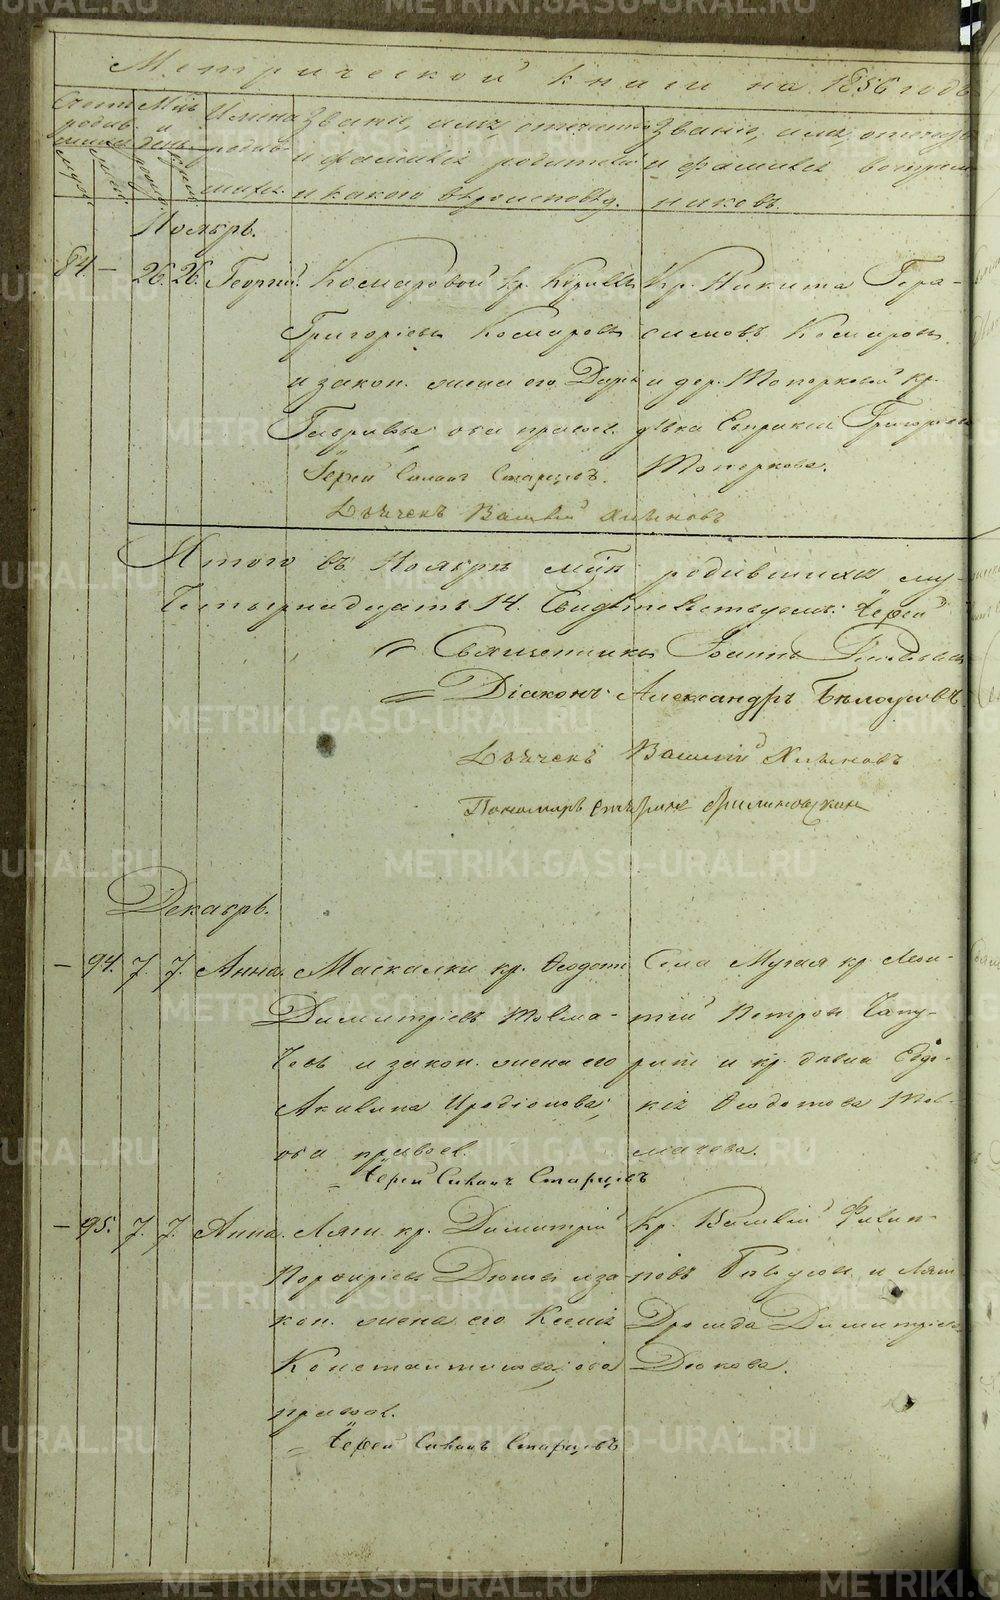 Метрической книги на 1856 годъ
Счетъ родив- шихся
муж. жен.
Мѣс. и день
рожд. крещ.
Имена родив- шихся.
Званіе, имя, отчество
и фамилія родителей
и какого вѣроисповѣд.
Званіе, имя, отчество
и фамилія воспріем-
никовъ.
Ноябрь.
84. – 26. 26. Георгій.
Комаровой кр. Кириллъ
Григоріевъ Комаровъ
и закон. жена его Дарья
Гаврилова оба правосл.
Іерей Симеонъ Старцевъ.
Дьячекъ Василій Хлыновъ
Кр. Никита Гера-
симовъ Комаровъ
и дер. Топорковой кр.
дѣвка Евпраксія Григорьева
Топоркова.
Итого въ Ноябрѣ мцѣ родившихся му-
Четырнадцать 14. Свидѣтельствуемъ: Іерей
Священникъ Іоаннъ
Діаконъ Александръ Бѣлоусовъ
Дьячекъ Василій Хлыновъ
Пономарь
Декабрь.
– 94. 7. 7. Анна.
Маскалки кр. Ѳеодотъ
Димитріевъ Толма-
чевъ и закон. жена его
Акилина Иродіонова;
оба правосл.
Іерей Симеонъ Старцевъ
Села Мугая кр. Леон-
тій Петровъ Чапу-
рин и кр. дѣвка Евдо-
кія Ѳеодотова Тол-
мачева.
– 95. 7. 7. Анна.
Ляги кр. Димитрій
Порфирьевъ Дюковъ и за-
кон. жена его Ксенія
Константинова; оба
правосл.
Іерей Симеонъ Старцевъ
Кр. Василій Филип-
повъ Бѣлоусовъ и Ляги
Димитріева
Дюкова.
METRIKI.GASO-URAL.RU